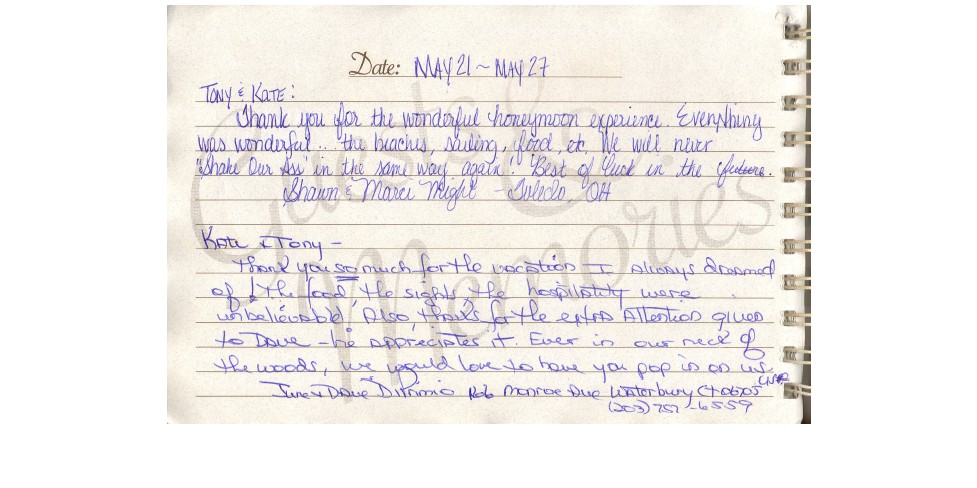 Date: MAY 21 ~ MAY 27
TONY & KATE:
Thank you for the wonderful honeymoon experience. Everything
was wonderful... the beaches, sailing, food, etc. We will never
"Shake Our Ass" in the same way again! Best of luck in the future.
Shawn & Marci Wright - Toledo, OH
Guests & Memories
Kate & Tony -
Thank you so much for the vacation I always dreamed
of! The food, the sights, the hospitality were
unbelievable! Also, thanks for the extra attention given
to Dave - he appreciates it. Ever in our neck of
the woods, we would love to have you pop in on us.
June & Dave Monroe Ave Waterbury Ct 06705
(203) 757-6559